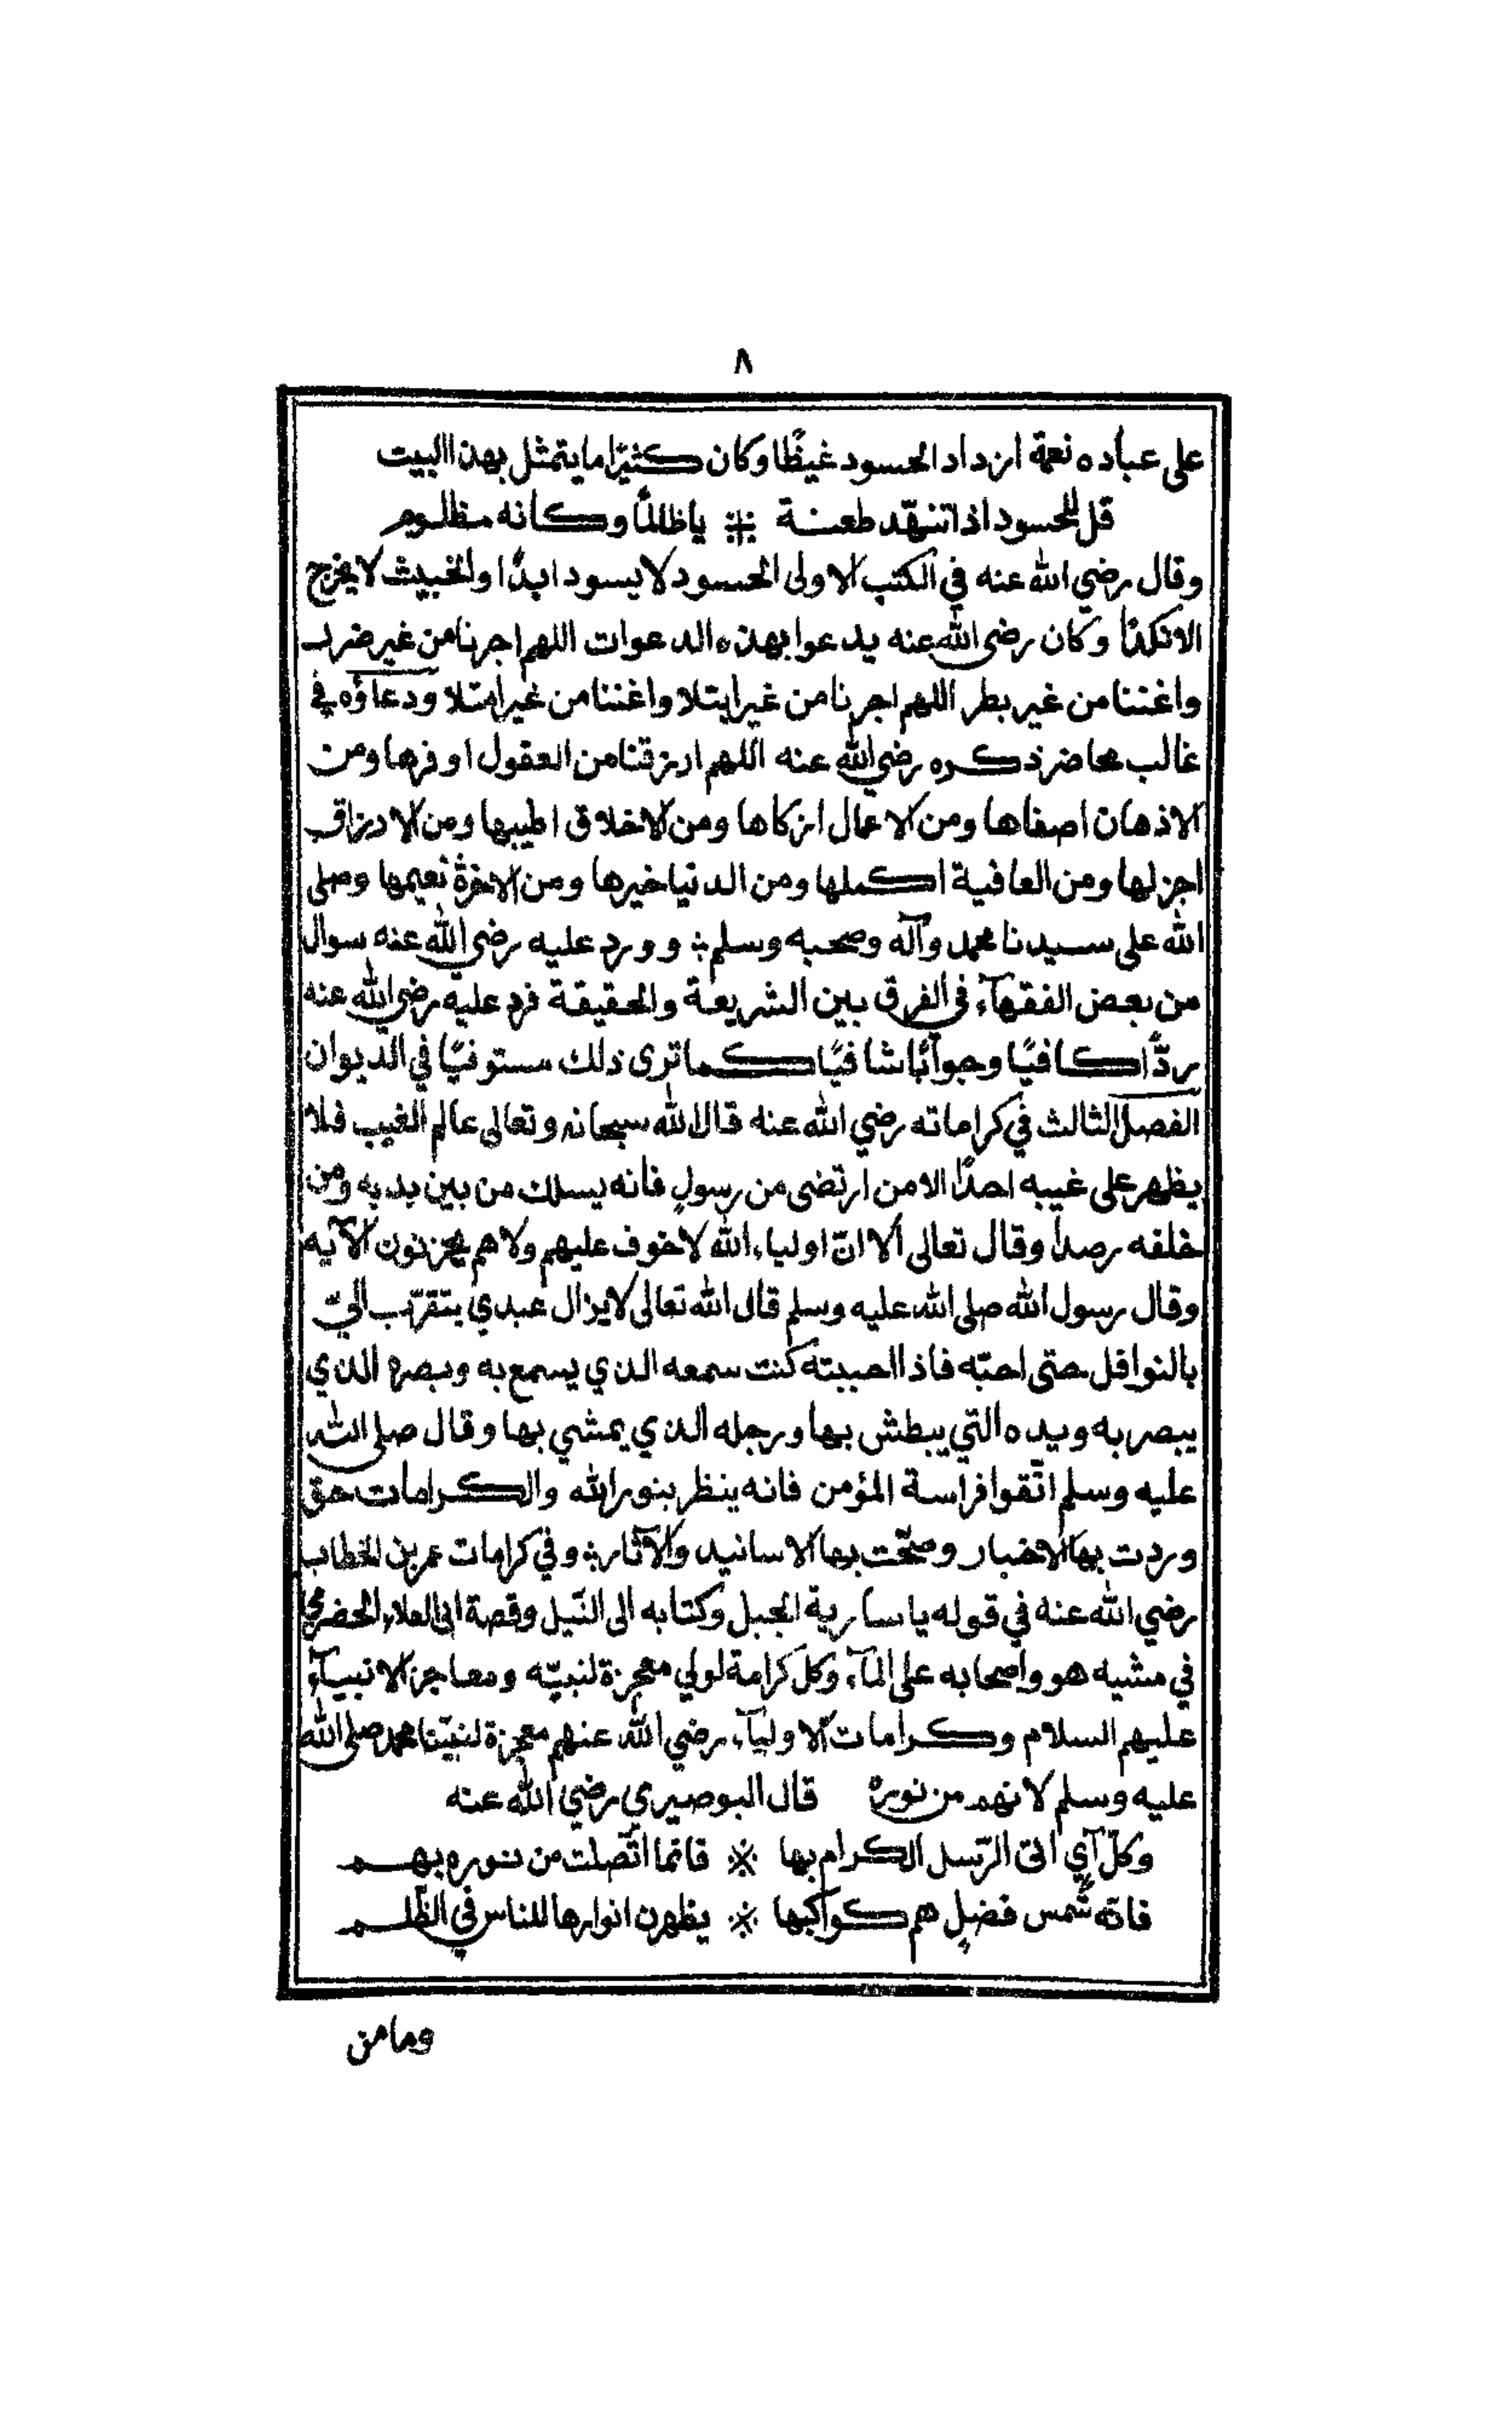 ٨
على عباده نعمة ازداد الحسود غيظًا وكان كثيرًا ما يتمثل بهذا البيت
قل للحسود اذا تنهّد طعنة ❊ ياظالمًا وكانه مظلوم
وقال رضي الله عنه في الكتب الاولى الحسود لا يسود ابدًا والخبيث لا يخرج
الا نكدًا وكان رضي الله عنه يدعوا بهذه الدعوات اللهم اجرنا من غير ضرر
واغننا من غير بطر اللهم اجرنا من غير ابتلا واغننا من غير امتلا ودعاؤه في
غالب محاضر ذكره رضي الله عنه اللهم ارزقنا من العقول اوفرها ومن
الاذهان اصفاها ومن الاعمال ازكاها ومن الاخلاق اطيبها ومن الارزاق
اجزلها ومن العافية اكملها ومن الدنيا خيرها ومن الاخرة نعيمها وصلى
الله على سيدنا محمد وآله وصحبه وسلم ؛ وورد عليه رضي الله عنه سوال
من بعض الفقهآء في الفرق بين الشريعة والحقيقة فرد عليه رضي الله عنه
ردًّا كافيًا وجوآبًا شافيًا كما ترى ذلك مستوفيًا في الديوان
الفصل الثالث في كراماته رضي الله عنه قال الله سبحانه وتعالى عالم الغيب فلا
يظهر على غيبه احدًا الا من ارتضى من رسولٍ فانه يسلك من بين يديه ومن
خلفه رصدا وقال تعالى الا انّ اولياء الله لا خوف عليهم ولا هم يحزنون الآيه
وقال رسول الله صلى الله عليه وسلم قال الله تعالى لا يزال عبدي يتقرّب اليّ
بالنوافل حتى احبّه فاذا احببته كنت سمعه الذي يسمع به وبصره الذي
يبصر به ويده التي يبطش بها ورجله الذي يمشي بها وقال صلى الله
عليه وسلم اتّقوا فراسة المؤمن فانه ينظر بنور الله والكرامات حق
وردت بها الاخبار وصحّت بها الاسانيد والآثار ؛ وفي كرامات عمر بن الخطاب
رضي الله عنه في قوله يا سارية الجبل وكتابه الى النّيل وقصة ابى العلاء الحضرمي
في مشيه هو واصحابه على المآء وكل كرامة لولي معجزة لنبيّه ومعاجز الانبيآء
عليهم السلام وكرامات الاوليآء رضي الله عنهم معجزة لنبيّنا محمد صلى الله
عليه وسلم لانهم من نوره قال البوصيري رضي الله عنه
وكلّ آي اتى الرّسل الكرام بها ※ فانما اتّصلت من نوره بهم
فانّه شمس فضلٍ هم كواكبها ※ يظهرن انوارها للناس في الظّلم
ومامن